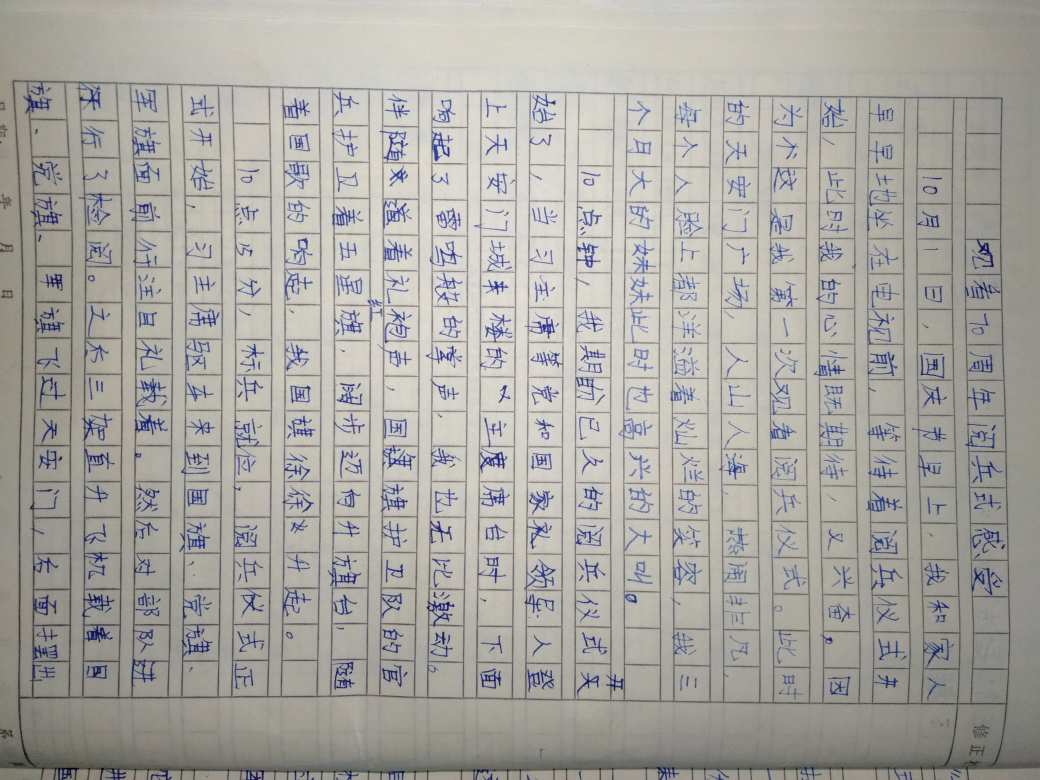 观看70周年阅兵式感受
10月1日，国庆节早上，我和家人
早早地坐在电视前，等待着阅兵仪式开
始，此时我的心情既期待，又兴奋，因
为这是我第一次观看阅兵仪式。此时
的天安门广场，人山人海，热闹非凡，
每个人脸上都洋溢着灿烂的笑容，我三
个月大的妹妹此时也高兴的大叫。
10点钟，我期盼已久的阅兵仪式开
始了，当习主席等党和国家领导人登
上天安门城楼的主席台时，下面
响起了雷鸣般的掌声，我也无比激动。
伴随着礼袍声，国旗护卫队的官
兵护卫着五星红旗，阔步迈向升旗台，随
着国歌的响起，我国旗徐徐升起。
10点15分，标兵就位，阅兵仪式正
式开始，习主席驱车来到国旗、党旗、
军旗面前行注目礼载着。然后对部队进
行了检阅。之后三架直升飞机载着国
旗、党旗、军旗飞过天安门，后面摆出
修正
年 月 日